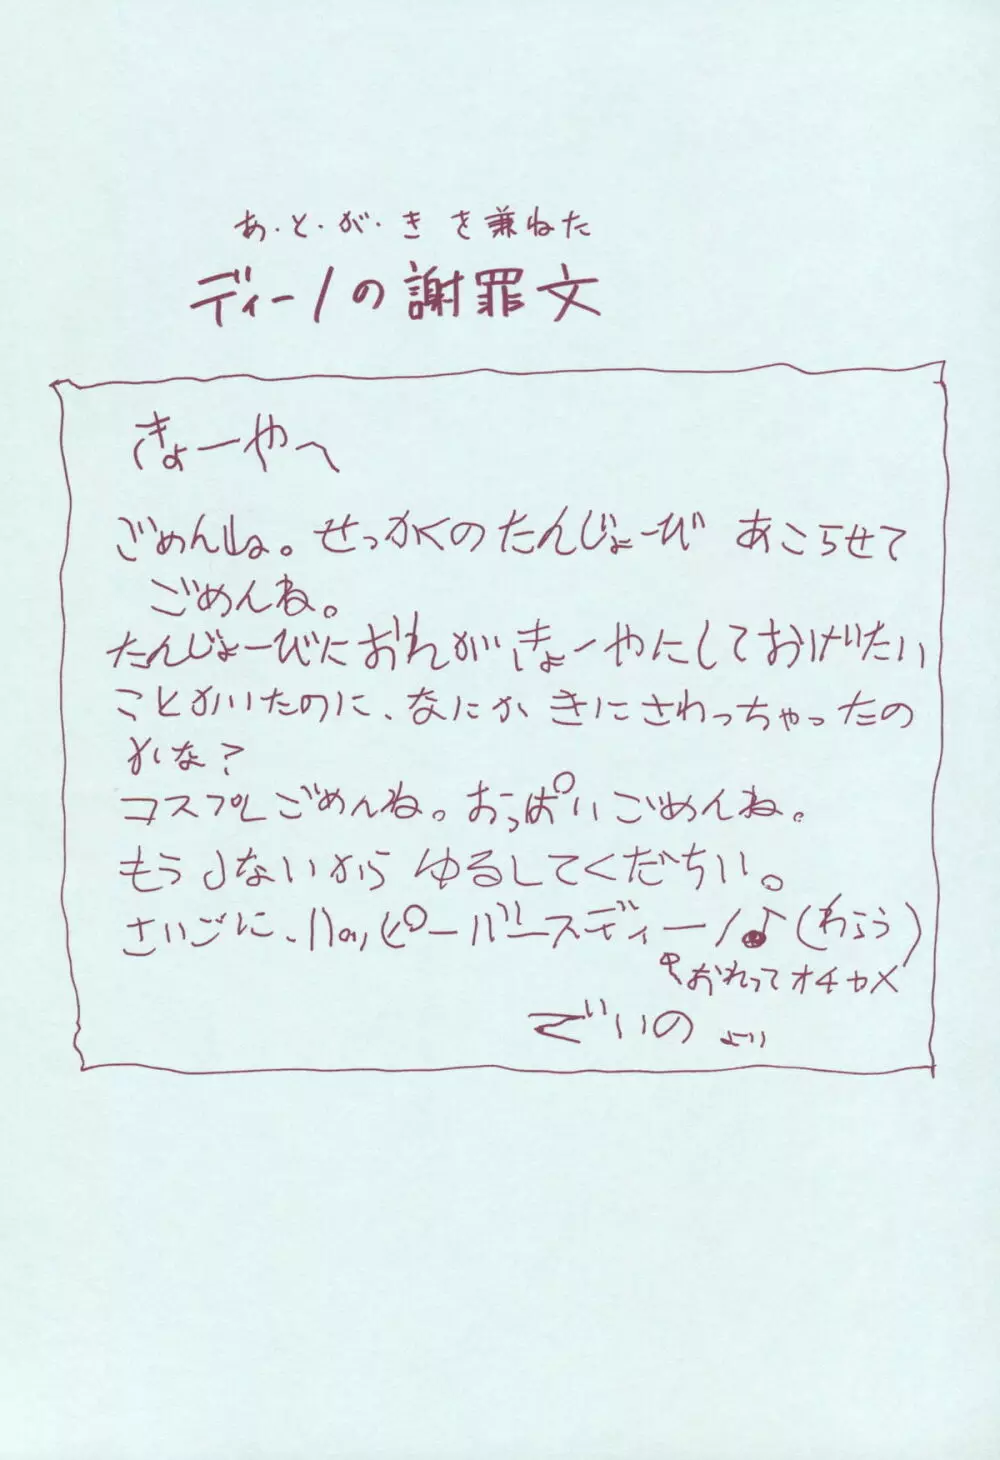 あ・と・が・き を兼ねた
ディーノの謝罪文
きょーやへ
ごめんね。せっかくのたんじょーび あこらせて
ごめんね。
たんじょーびにおれがきょーやにしておげたい
ことかいたのに、なにか きにさわっちゃったの
かな？
コスプレごめんね。おっぱいごめんね。
もうしないから ゆるしてくだちい。
さいごに、ハッピーバースディーノ♪(わらう)
おれってオチャメ
でいいの より